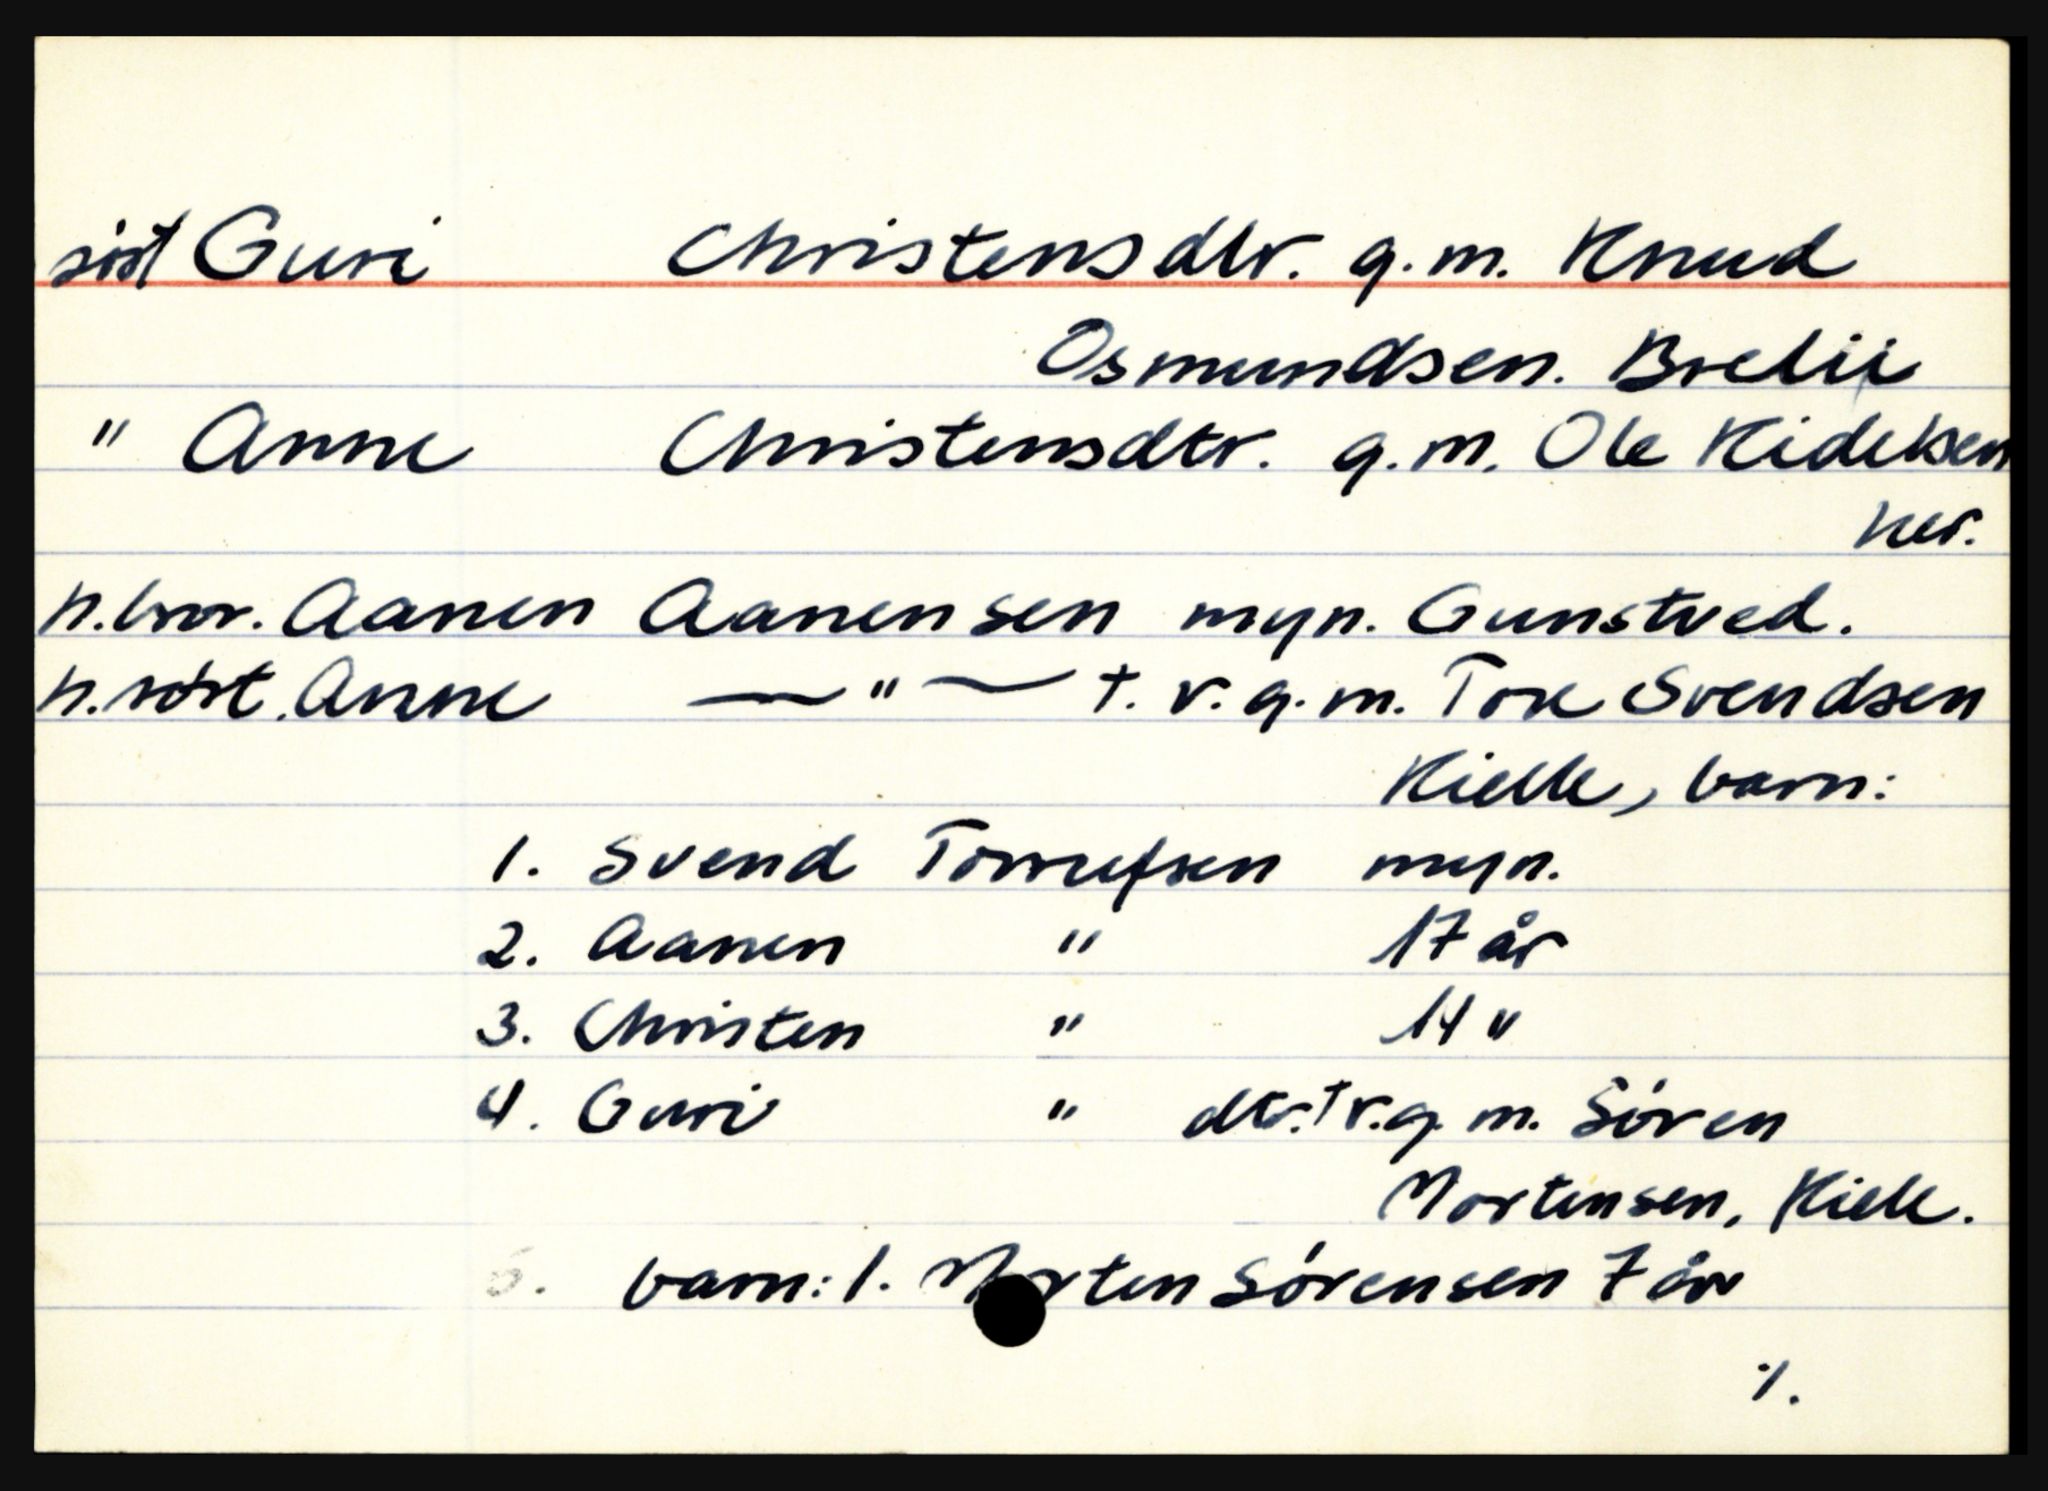 søst Guri Christensdtr. g.m. Knud
Osmundsen. Brelii
" Anne Christensdtr. g.m. Ole Kidelsen
her.
h.bror. Aanen Aanensen myn. Gunstved.
h.søst. Anne — " — †. v. g. m. Tore Svendsen
Kielle, barn:
1. Svend Torrefsen myn.
2. Aanen " 17 år
3. Christen " 14 "
4. Guri " dtr. † v. g. m. Søren
Mortensen, Kiele.
5. barn: 1. Morten Sørensen 7 år